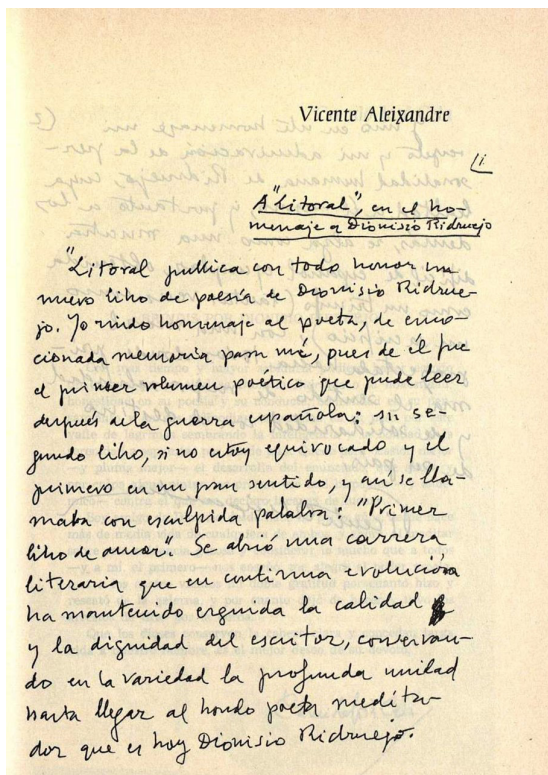 Vicente Aleixandre
A "Litoral", en el ho-
menaje a Dionisio Ridruejo
"Litoral publica con todo honor un
nuevo libro de poesía de Dionisio Ridrue-
jo. Yo rindo homenaje al poeta, de emo-
cionada memoria para mí, pues de él fue
el primer volumen poético que pude leer
después de la guerra española: su se-
gundo libro, si no estoy equivocado y el
primero en su pleno sentido, y así se lla-
maba con esculpida palabra: "Primer
libro de amor." Se abrió una carrera
literaria que en continua evolución
ha mantenido erguida la calidad
y la dignidad del escritor, conservan-
do en la variedad la profunda unidad
hasta llegar al hondo poeta medita-
dor que es hoy Dionisio Ridruejo.